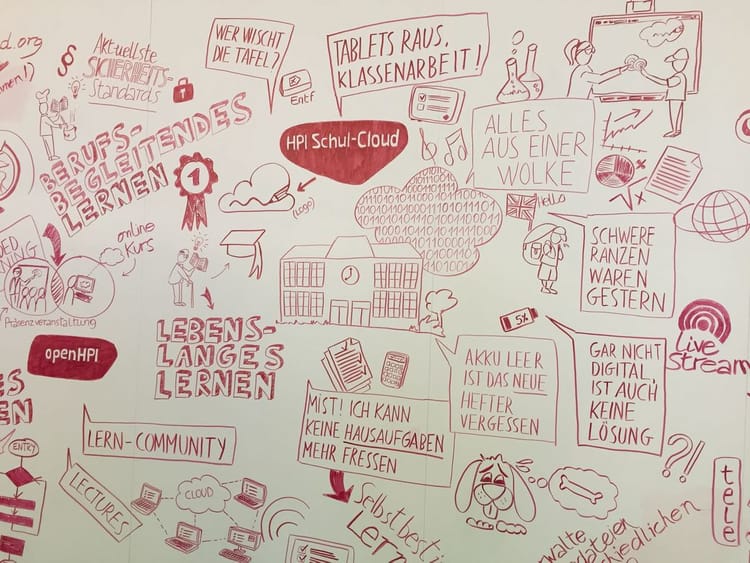 d.org
Aktuellste
SICHERHEITS-
Standards
§
BERUFS-
BEGLEITENDES
LERNEN
1
WER WISCHT
DIE TAFEL?
Entf
TABLETS RAUS,
KLASSENARBEIT!
HPI Schul-Cloud
(LOGO)
ALLES
AUS EINER
WOLKE
Hello
SCHWERE
RANZEN
WAREN
GESTERN
online
Kurs
Präsenzveranstaltung
openHPI
LEBENS-
LANGES
LERNEN
5%
AKKU LEER
IST DAS NEUE
HEFTER
VERGESSEN
GAR NICHT
DIGITAL,
IST AUCH
KEINE
LÖSUNG
Live
Stream
MIST! ICH KANN
KEINE HAUSAUFGABEN
MEHR FRESSEN
LERN-COMMUNITY
LECTURES
ENTRY
CLOUD
Selbstbesti
Lern
?!
tele
rwalte
dateien
schiedlichen